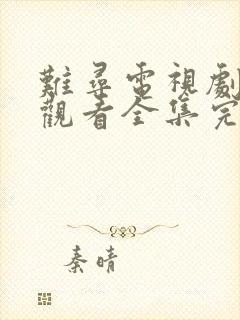 難尋電視劇
觀看全集完
秦晴